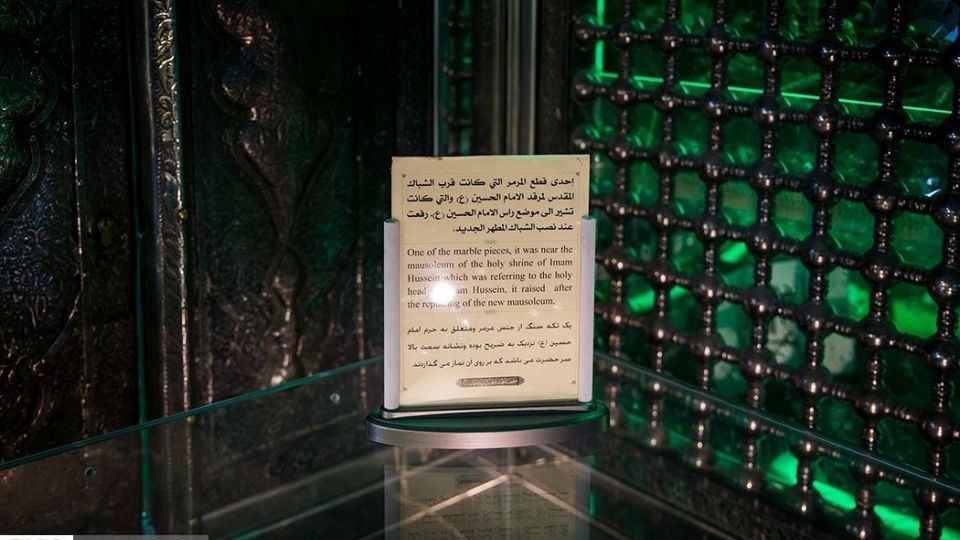 إحدى قطع المرمر التي كانت قرب الشباك
المقدس لمرقد الامام الحسين (ع)، والتي كانت
تشير الى موضع راس الامام الحسين (ع)، رفعت
عند نصب الشباك المطهر الجديد.
One of the marble pieces, it was near the
mausoleum of the holy shrine of Imam
Hussein which was referring to the holy
head Hussein, it raised after
the replacing of the new mausoleum.
یک تکه سنگ از جنس مرمر ومتعلق به حرم امام
حسین (ع) نزدیک به ضریح بوده ونشانه سمت بالا
سر حضرت می باشد که بر روی آن نماز می گذارند.